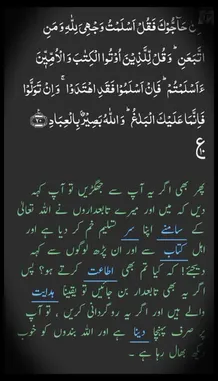 فَاِنْ حَآجُّوْكَ فَقُلْ اَسْلَمْتُ وَجْهِيَ لِلّٰهِ وَمَنِ
اتَّبَعَنِ ؕ وَقُلْ لِّلَّذِيْنَ اُوْتُوا الْكِتٰبَ وَالْاُمِّيّٖنَ
ءَاَسْلَمْتُمْ ؕ فَاِنْ اَسْلَمُوْا فَقَدِ اهْتَدَوْا ۚ وَاِنْ تَوَلَّوْا
فَاِنَّمَا عَلَيْكَ الْبَلٰغُ ؕ وَاللّٰهُ بَصِيْرٌۢ بِالْعِبَادِ ﴿۲۰﴾
ع
پھر بھی اگر یہ آپ سے جھگڑیں تو آپ کہہ
دیں کہ میں اور میرے تابعداروں نے اللہ تعالیٰ
کے سامنے اپنا سر تسلیم خم کر دیا ہے اور
اہل کتاب سے اور ان پڑھ لوگوں سے کہہ
دیجئے! کہ کیا تم بھی اطاعت کرتے ہو؟ پس
اگر یہ بھی تابعدار بن جائیں تو یقیناً ہدایت
والے ہیں اور اگر یہ روگردانی کریں ، تو آپ
پر صرف پہنچا دینا ہے اور اللہ بندوں کو خوب
دیکھ بھال رہا ہے ۔